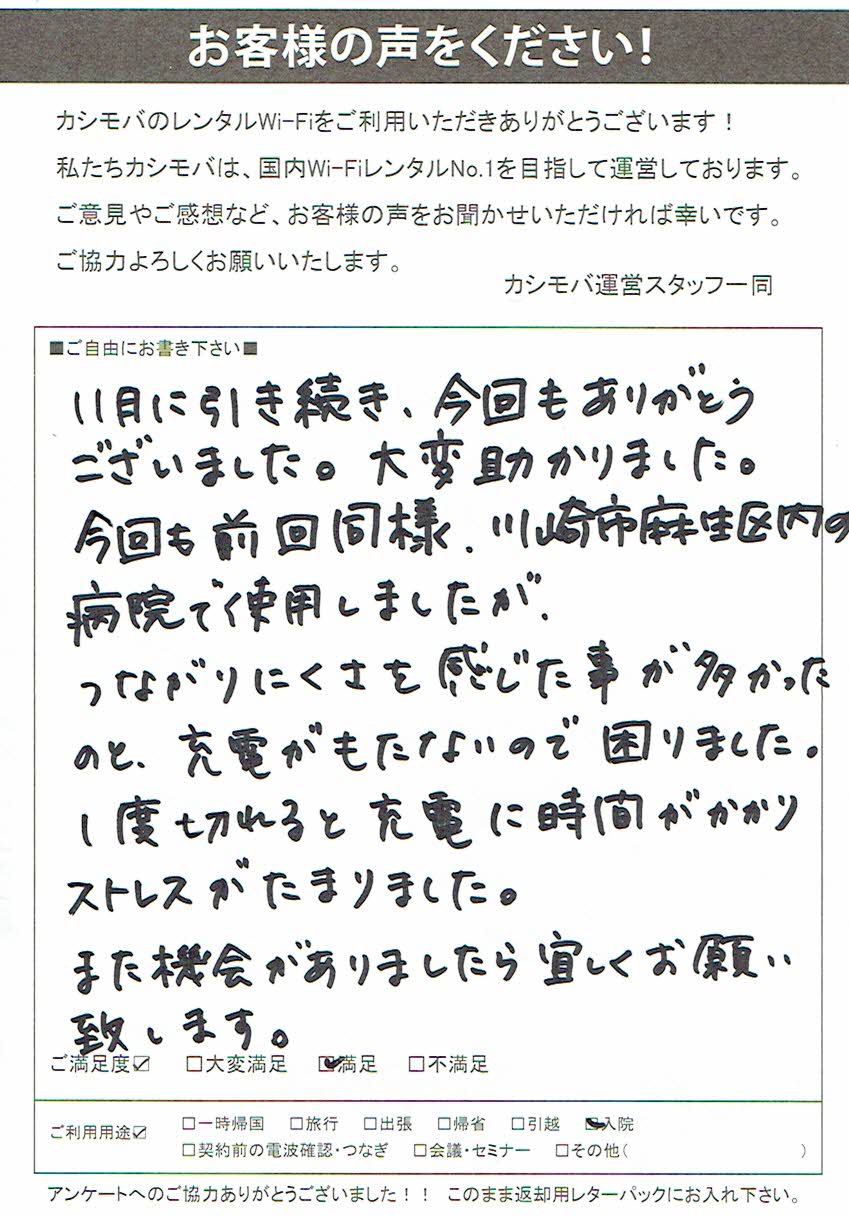 お客様の声をください！
カシモバのレンタルWi-Fiをご利用いただきありがとうございます！
私たちカシモバは、国内Wi-FiレンタルNo.1を目指して運営しております。
ご意見やご感想など、お客様の声をお聞かせいただければ幸いです。
ご協力よろしくお願いいたします。
カシモバ運営スタッフ一同
■ご自由にお書き下さい■
11月に引き続き、今回もありがとう
ございました。大変助かりました。
今回も前回同様、川崎市麻生区内の
病院で使用しましたが、
つながりにくさを感じた事が多かった
のと、充電がもたないので困りました。
1度切れると充電に時間がかかり
ストレスがたまりました。
また機会がありましたら宜しくお願い
致します。
ご満足度☑ □大変満足 ☑満足 □不満足
ご利用用途☑ □一時帰国 □旅行 □出張 □帰省 □引越 ☑入院
□契約前の電波確認・つなぎ □会議・セミナー □その他( )
アンケートへのご協力ありがとうございました！！ このまま返却用レターパックにお入れ下さい。